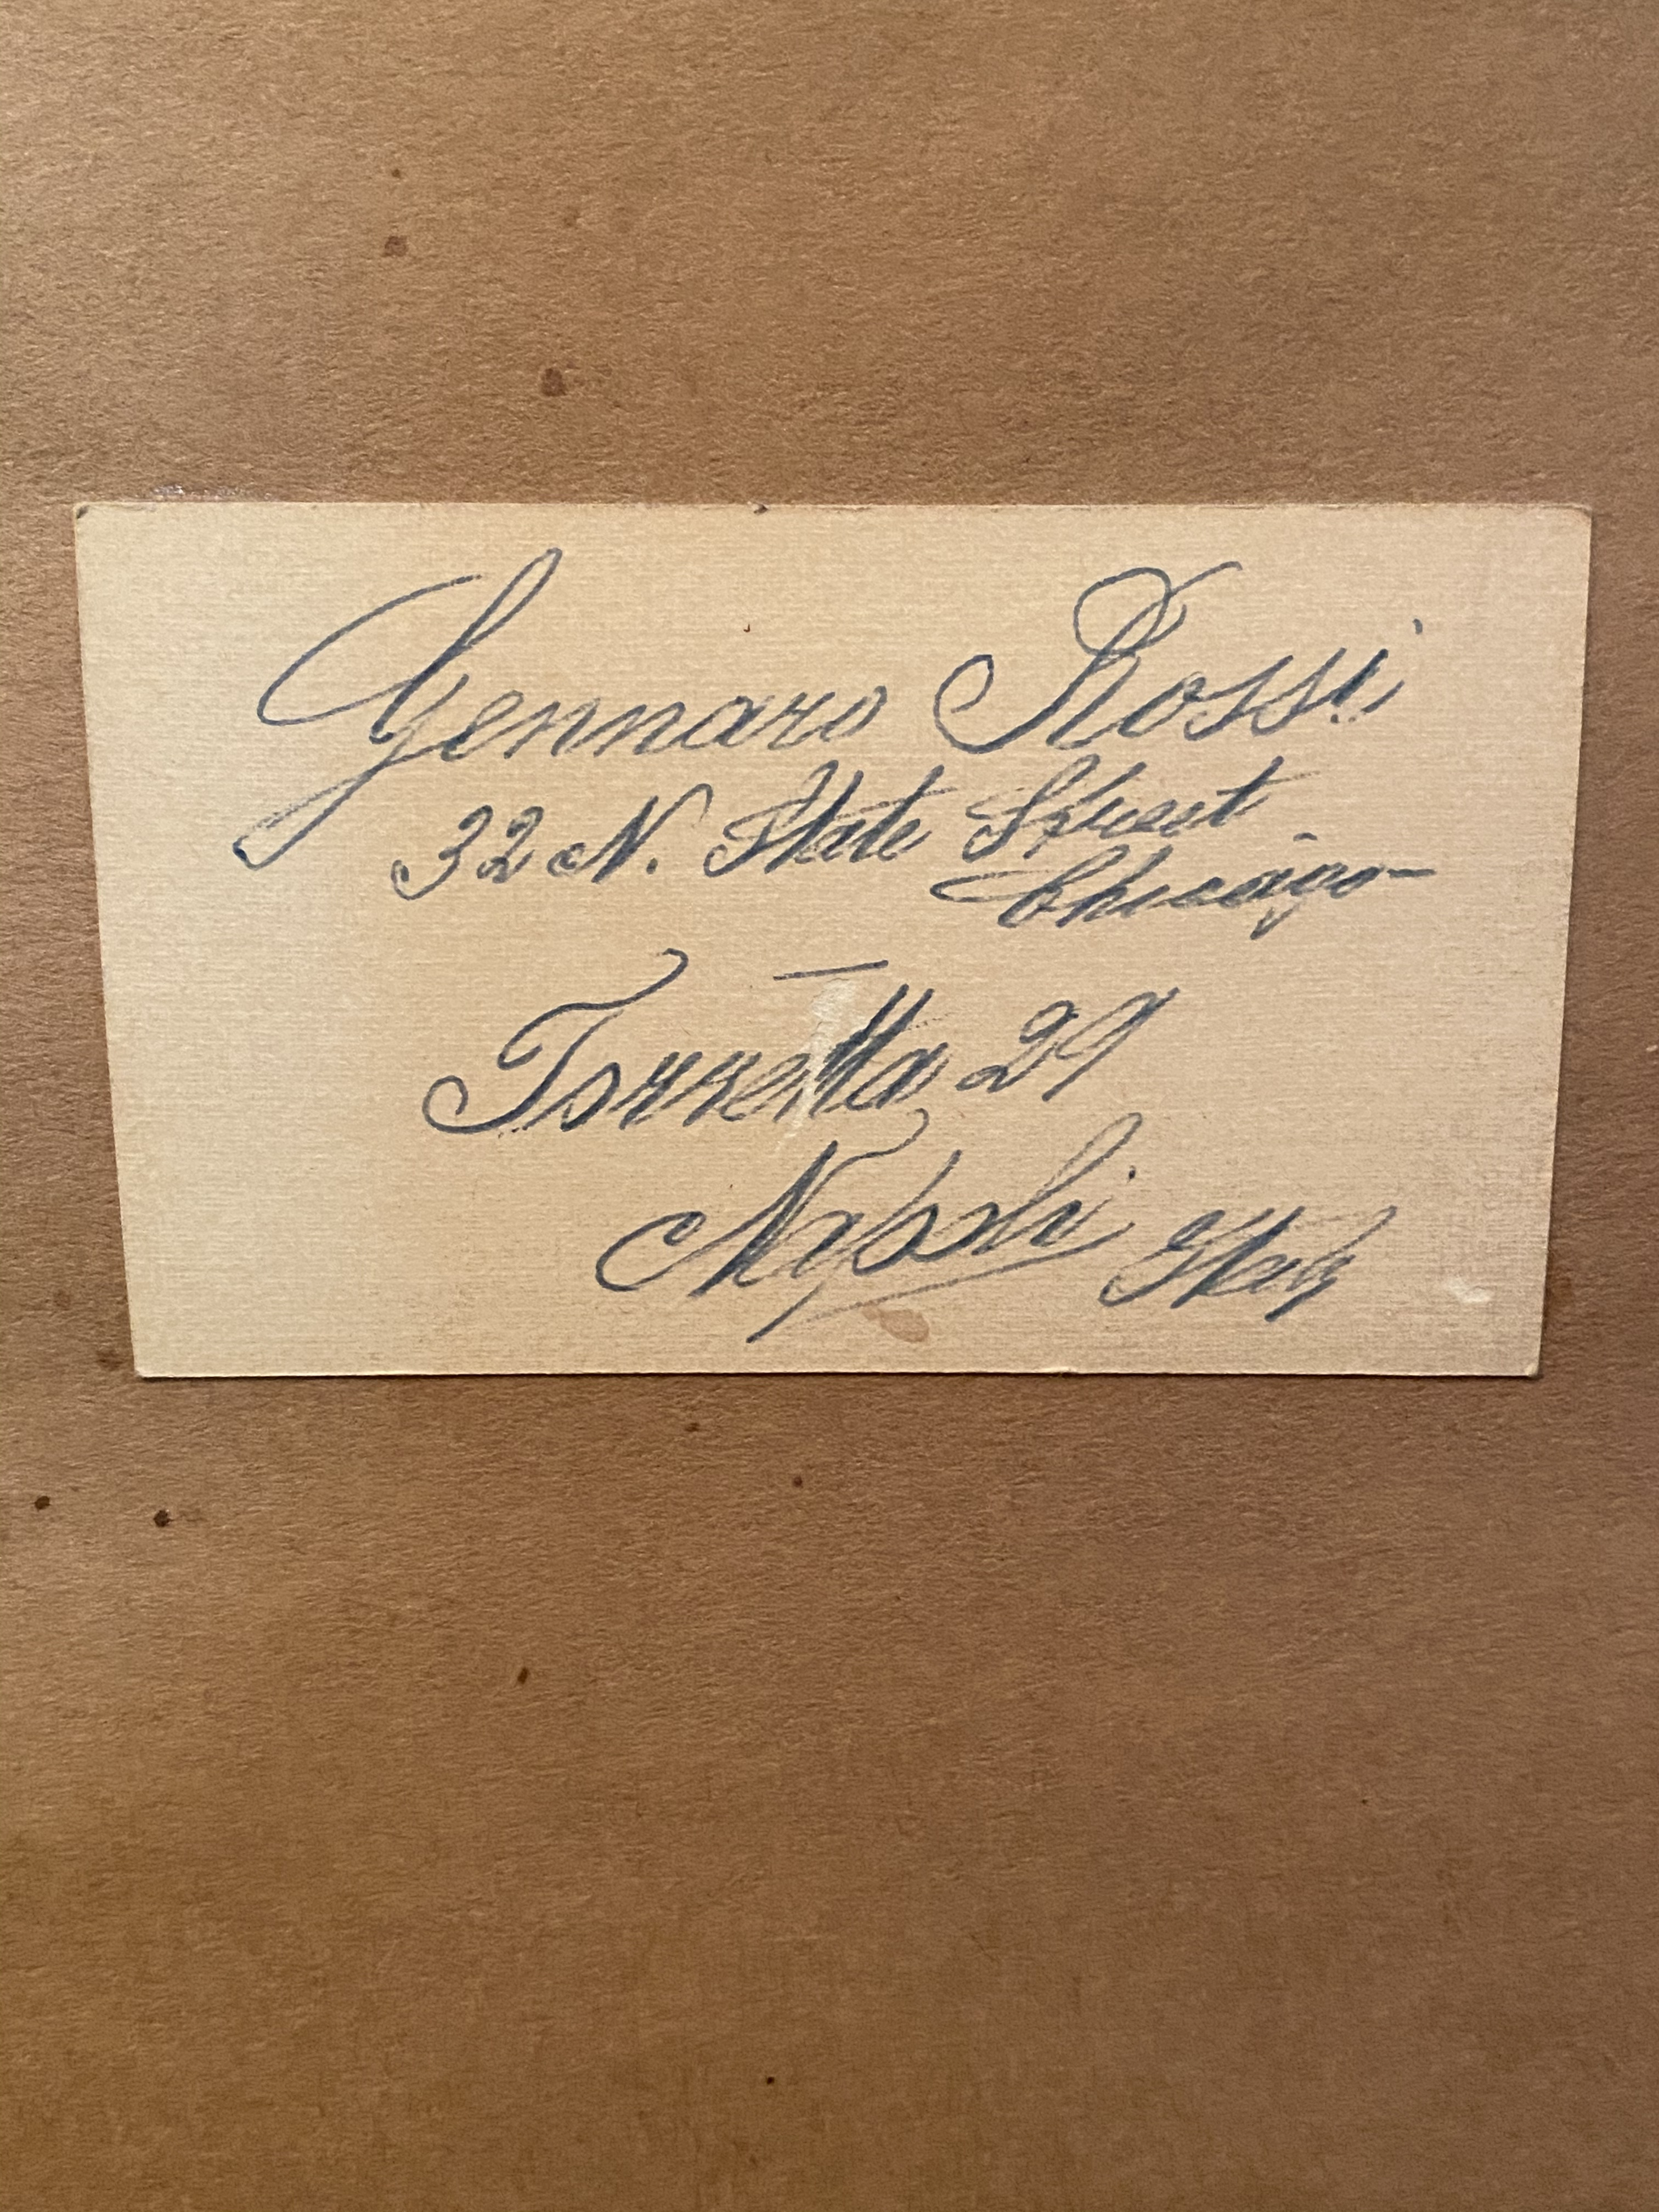 Gennaro Rossi
32 N. State Street
Chicago-
Torretta 29
Napoli Italy